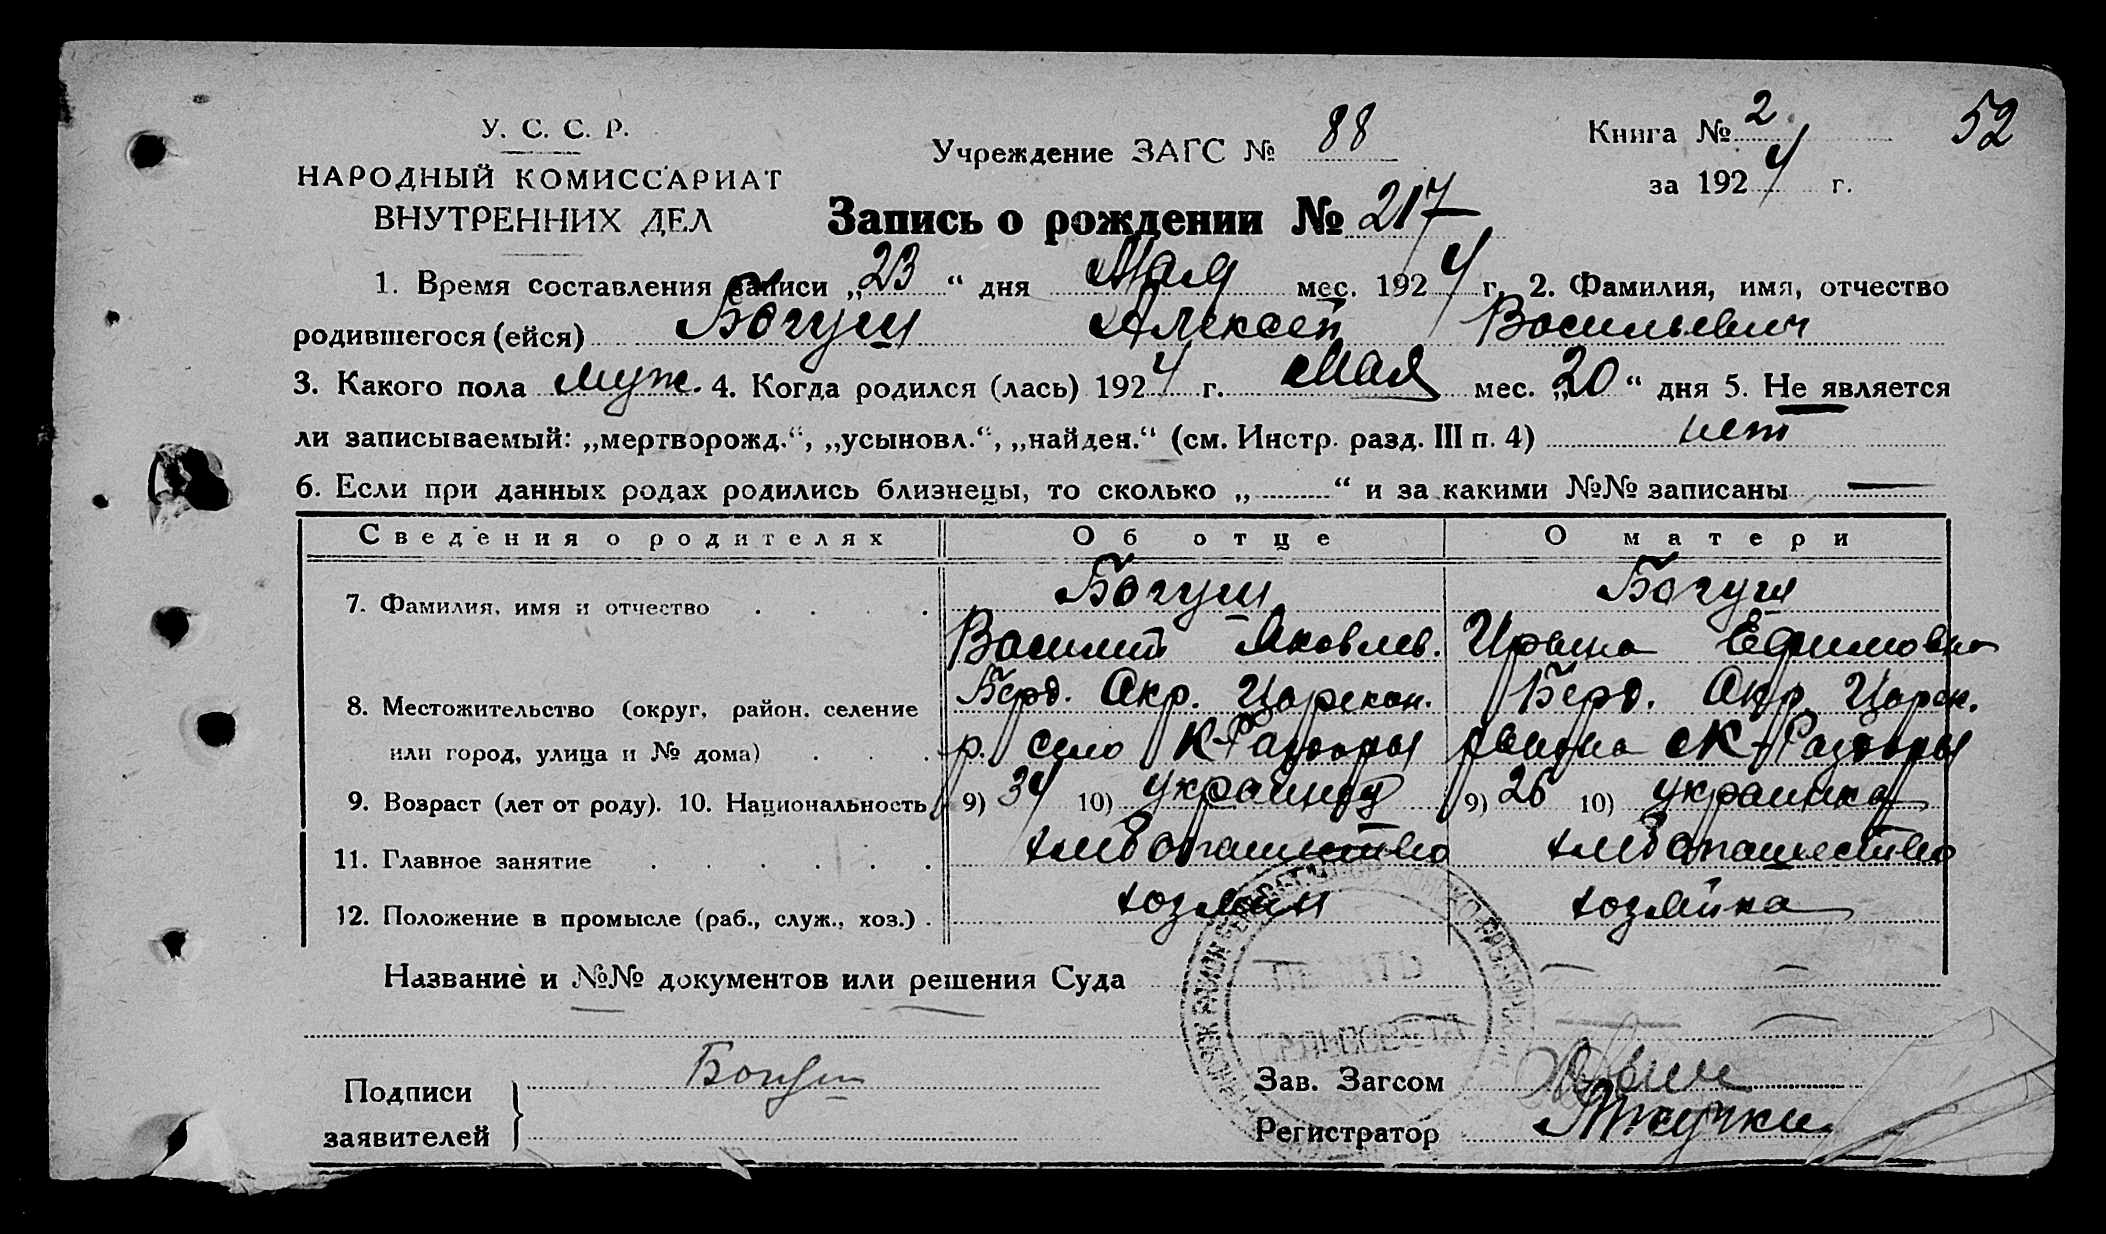 У. С. С. Р.
НАРОДНЫЙ КОМИССАРИАТ
ВНУТРЕННИХ ДЕЛ
Учреждение ЗАГС № 88
Книга № 2
52
за 1924 г.
Запись о рождении № 217
1. Время составления записи „23“ дня Мая мес. 1924 г. 2. Фамилия, имя, отчество
родившегося (ейся) Богуш Алексей Васильевич
3. Какого пола муж. 4. Когда родился (лась) 1924 г. Мая мес. „20“ дня 5. Не является
ли записываемый: „мертворожд.“, „усыновл.“, „найден.“ (см. Инстр. разд. III п. 4) нет
6. Если при данных родах родились близнецы, то сколько „..........“ и за какими №№ записаны —
Сведения о родителях Об отце О матери
7. Фамилия, имя и отчество Богуш Богуш
Василий Яковлев. Ирина Ефимовна
8. Местожительство (округ, район, селение Берд. Окр. Царекон. Берд. Окр. Царек.
или город, улица и № дома) р. село К-Раздоры района с К-Раздоры
9. Возраст (лет от роду). 10. Национальность 9) 34 10) украинец 9) 26 10) украинка
11. Главное занятие хлебопашество хлебопашество
12. Положение в промысле (раб., служ., хоз.) хозяин хозяйка
Название и №№ документов или решения Суда
Подписи
заявителей
Богуш
Зав. Загсом
Регистратор